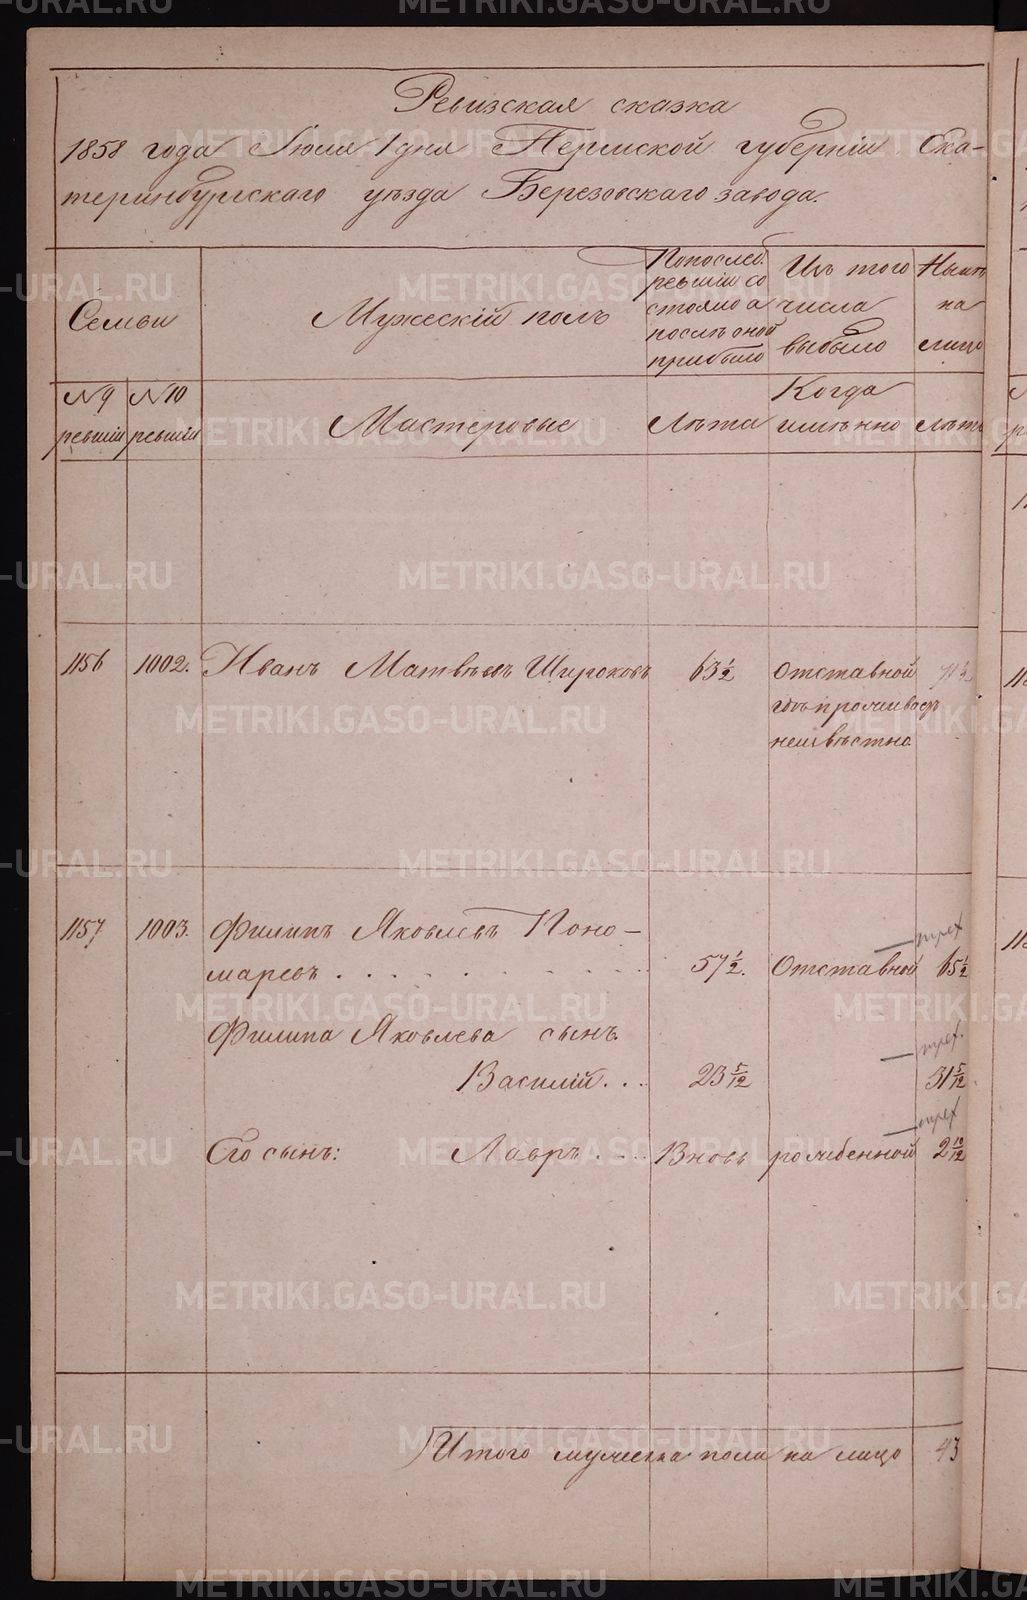 Ревизская сказка
1858 года Июля 1 дня Пермской губерніи Ека-
теринбургскаго уѣзда Березовскаго завода.
Семьи
Мужескій полъ
По послед.
ревизіи со
стояло а
послѣ оной
прибыло
Изъ того
числа
выбыло
Нынѣ
на
лицо
№ 9
ревизіи
№ 10
ревизіи
Мастеровые
Лѣта
Когда
именно
Лѣта
1156 1002. Иванъ Матвѣевъ Широковъ 63 1/2 Отставной
гдѣ проживаетъ
неизвѣстно
1157 1003. Филипъ Яковлевъ Поно-
маревъ . . . . . . . . 57 1/2. Отставной 65 1/2
Филипа Яковлева сынъ
Василій . . . 23 5/12 31 5/12
Его сынъ: Лавръ . . . Вновь рожденной 2 10/12
Итого мужеска пола на лицо 43
METRIKI.GASO-URAL.RU